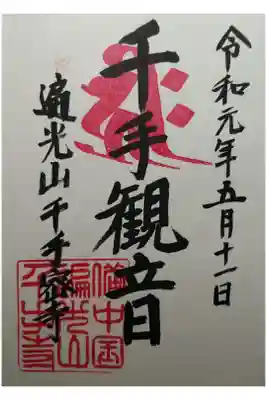 令和元年五月十一日
千手観音
遍光山千手寺
備中国
遍光山